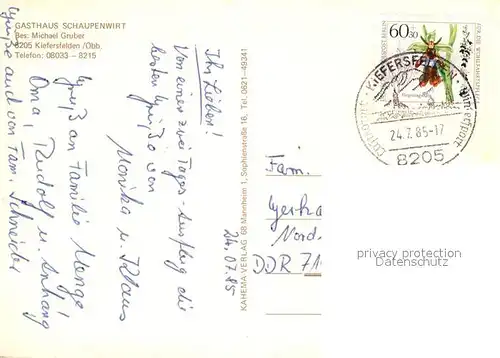 GASTHAUS SCHAUPENWIRT
Bes: Michael Gruber
8205 Kiefersfelden /Obb.
Telefon: 08033 – 8215
Ihr Lieben!
Von einer zwei Tages-Ausflug die
besten Grüße von
Monika u. Klaus
Gruß an Familie Menge!
Oma, Rudolf u. Anhang
Grüße auch von Fam. Schneider
24.07.85
KAHEMA VERLAG 68 Mannheim 1, Sophienstraße 16, Tel. 0621-49341
60+30
KIEFERSFELDEN
24.7.85-17
8205
Fam.
Gerha
Nord.
DDR 71
privacy protection
Datenschutz